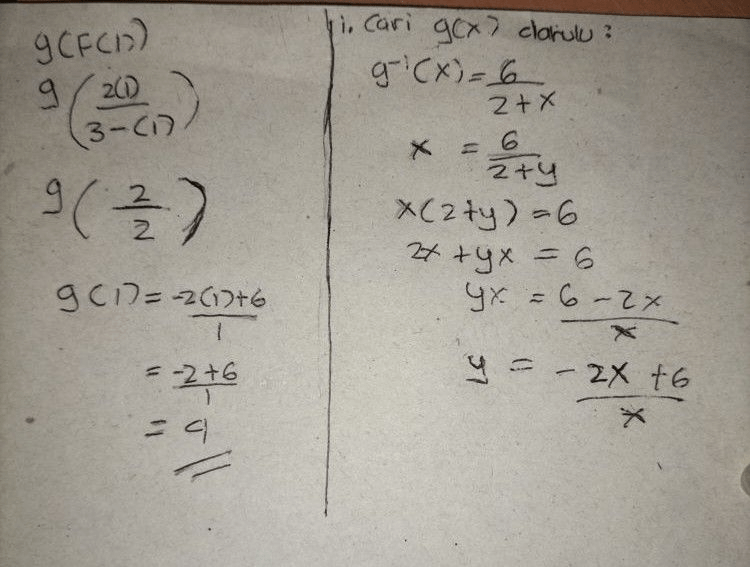 g(F(1))
g(2(1)/3-(1))
g(2/2)
g(1) = -2(1)+6/1
= -2+6/1
= 4
1. Cari g(x) dahulu:
g⁻¹(x) = 6/2+x
x = 6/2+y
x(2+y) = 6
2x + yx = 6
yx = 6 - 2x/x
y = -2x + 6/x